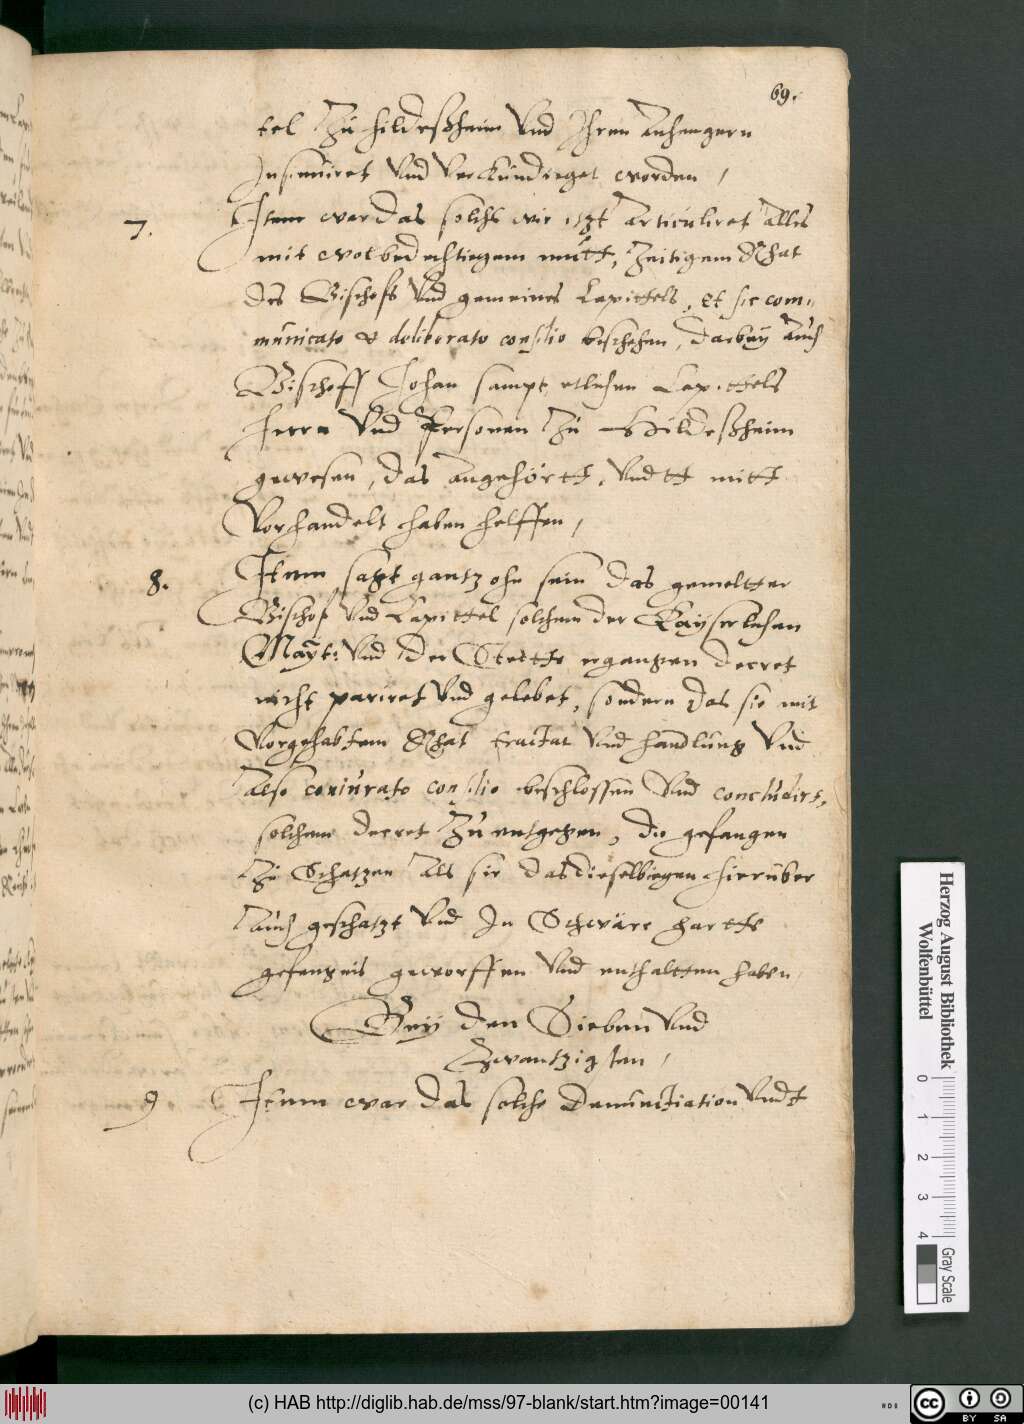 69.
tel Zu Hildeßheim Vnd Ihren Anhengern
Insinuiret Vnd Verkundiget worden /
7. Item war das solchs wir itzt Articuliret Alles
mit wolbedechtigem mutt, Zeitigem Rhat
des Bischofs Vnd gemeines Capittels, et sic com=
municato & deliberato consilio beschehen, darbey Auch
Bischoff Johan sampt etlichen Capittels
Herrn Vnd Personen Zu Hildeßheim
gewesen, das Angehörtt, Vndtt mitt
Vorhandelt haben helffen /
8. Item sagt gantz ohn sein das gemeltter
Bischof Vnd Capittel solchem der Kayserlichen
Maytt: Vnd der Stette ergangen decret
nicht pariret Vnd gelebet, sondern das sie mit
Vorgehabtem Rhat tractat Vnd handlung Vnd
Also coniurato consilio beschlossen Vnd concludirt,
solchem decret Zu entgegen, die gefangen
Zu Schatzen Als sie das dieselbigen hierüber
Auch geschatzt Vnd In Schwäre hartte
gefengnis geworffen Vnd enthaltten haben
Bey den Sieben Vnd
Zwantzigsten /
9 Item war das solche Denunctiation Vndt
Herzog August Bibliothek
Wolfenbüttel
0 1 2 3 4
Gray Scale
(c) HAB http://diglib.hab.de/mss/97-blank/start.htm?image=00141
cc BY SA